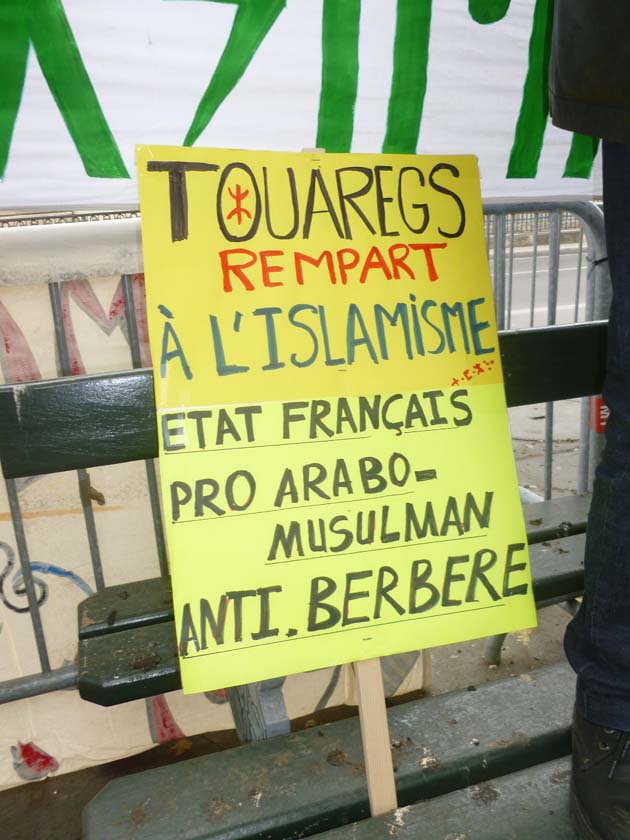 TOUAREGS
REMPART
À L'ISLAMISME
ETAT FRANÇAIS
PRO ARABO-
MUSULMAN
ANTI. BERBERE